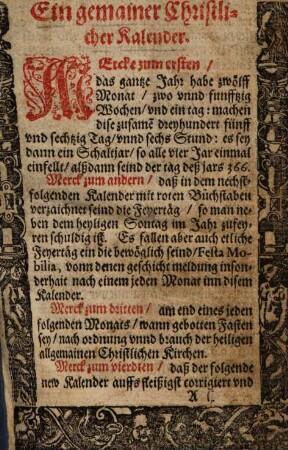 Ein gemainer Christli-
cher Kalender.
MErcke zum ersten /
das gantze Jahr habe zwölff
Monat / zwo vnnd funfftzig
Wochen / vnd ein tag: machen
dise zusamē dreyhundert fünff
vnd sechtzig Tag / vnnd sechs Stund: es sey
dann ein Schaltjar / so alle vier Jar einmal
einfellt / alßdann seind der tag deß jars 366.
Merck zum andern / daß in dem nechst-
folgenden Kalender mit roten Bůchstaben
verzaichnet seind die Feyertåg / so man ne-
ben dem heyligen Sontag im Jahr zufey-
ren schuldig ist. Es fallen aber auch etliche
Feyertåg ein die bewöglich seind / Festa Mo-
bilia, vonn denen geschicht meldung inson-
derhait nach einem jeden Monat inn disem
Kalender.
Merck zum dritten / am end eines jeden
folgenden Monats / wann gebotten Fasten
sey / nach ordnung vnnd brauch der heiligen
allgemainen Christlichen Kirchen.
Merck zum vierdten / daß der folgende
new Kalender auffs fleißigst corrigiert vnd
A